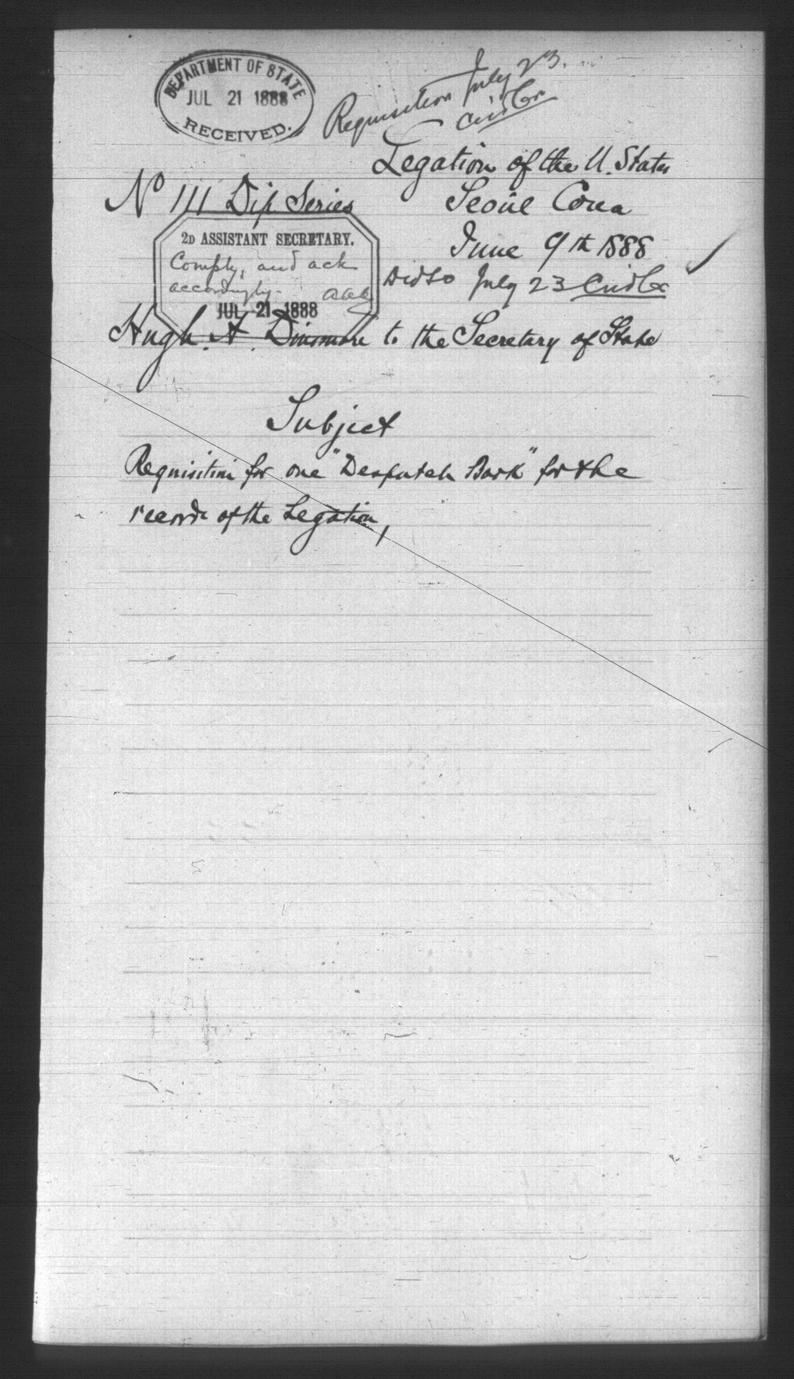 DEPARTMENT OF STATE
JUL 21 1888
RECEIVED.
Requisition July 23.
Legation of the U. States
Nº 111 Dip Series
Seoul Corea
June 9th 1888
2D ASSISTANT SECRETARY.
Comply, and ack
accordingly. AAA
JUL 21 1888
July 23
Hugh A. Dinsmore to the Secretary of State
Subject
Requisition for one "Despatch Book" for the
records of the Legation,